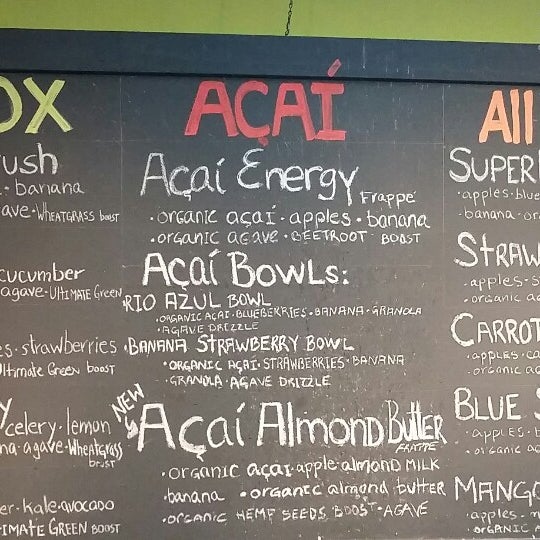 OX
ush
banana
ave · WHEATGRASS BOOST
cucumber
agave · ULTIMATE GREEN
es · strawberries
Ultimate GREEN BOOST
y celery · lemon
na · agave · WHEATGRASS
BOOST
er · kale · avocado
IMATE GREEN BOOST
AÇAÍ
Açaí Energy Frappé
· organic açaí · apples · banana
· organic agave · BEETROOT BOOST
AÇAÍ BOWLS:
· RIO AZUL BOWL
· ORGANIC AÇAI · BLUEBERRIES · BANANA · GRANOLA
· AGAVE DRIZZLE
· BANANA STRAWBERRY BOWL
· ORGANIC AÇAÍ · STRAWBERRIES · BANANA
· GRANOLA · AGAVE DRIZZLE
NEW
Açaí Almond Butter
FRAPPE
· organic açai · apple · almond MILK
· banana · organic almond butter
· organic HEMP SEEDS BOOST · AGAVE
All
SUPER
· apples · blue
· banana · or
STRAW
· apples · s
· organic a
CARROT
· apples · ca
· organic a
BLUE S
· apples · b
· organic a
MANGO
· apples · m
· ORGANIC A